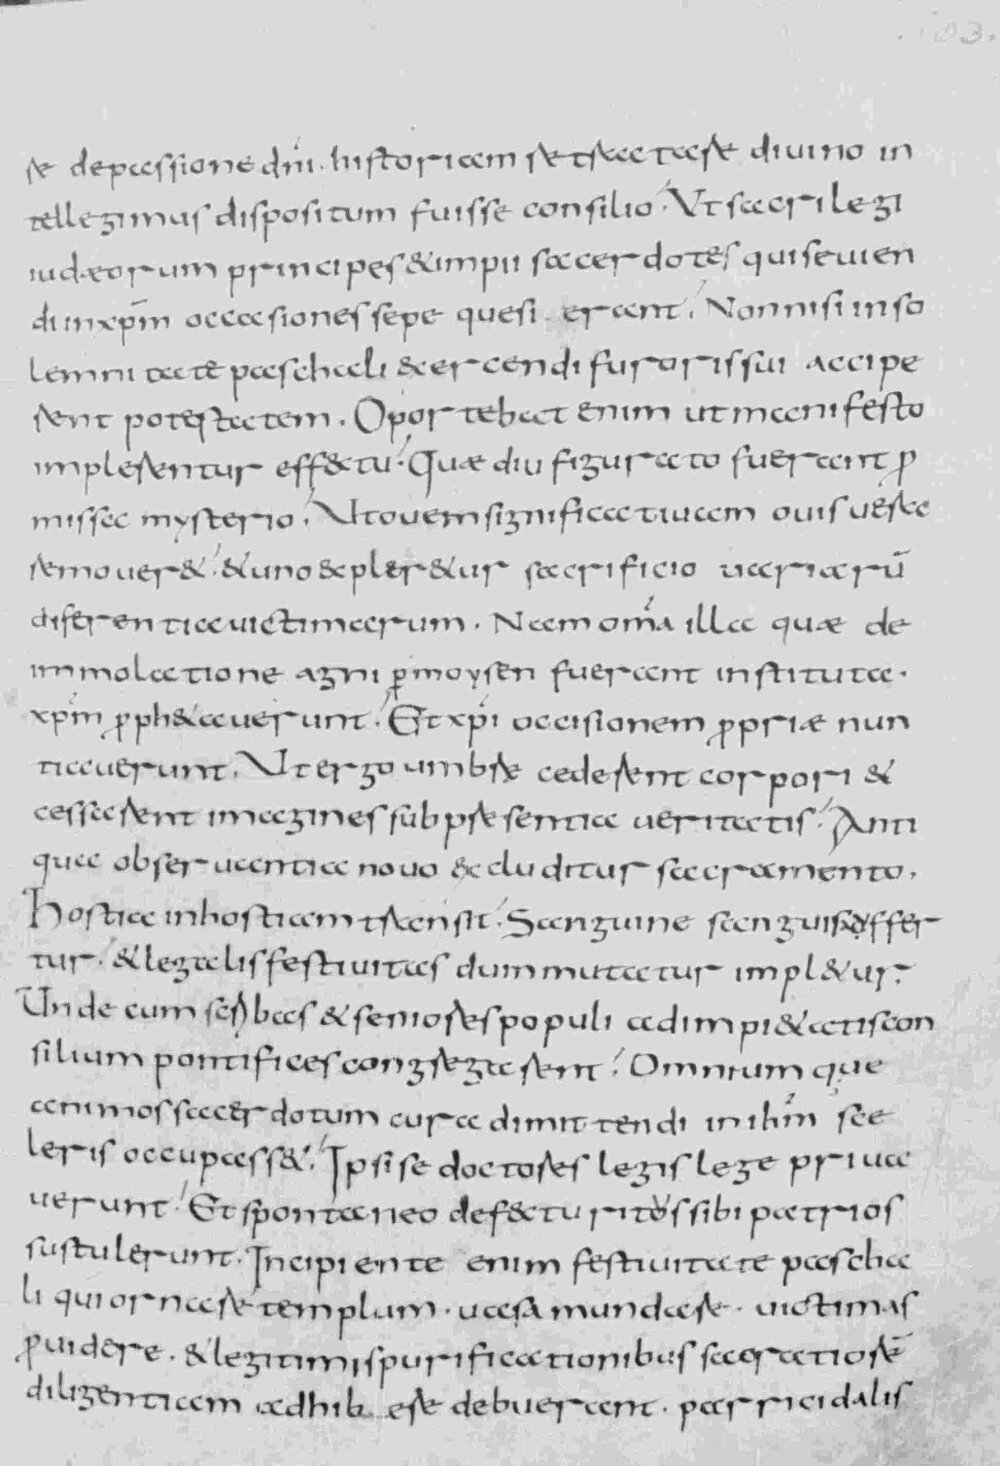 .103.
re depassione dñi. historiam retractare diuino in
tellegimus dispositum fuisse consilio. Ut sacrilegi
iudæorum principes & impii sacerdotes qui seuien
di inxp̄m occasiones sepe quesierant. Non nisi in so
lemnitate paschali exercendi furoris sui accipe
rent potestatem. Oportebat enim ut manifesto
implerentur effectu. Quæ diu figurato fuerant ꝓ
missa mysterio. Ut ouem significatiuam ouis uera
remouer&. & uno expler&ur sacrificio uariarū
diferentia uictimarum. Nam om̄a illa quæ de
immolatione agni ꝑ moysen fuerant instituta.
xp̄m ꝓph&auerunt. Et xp̄i occisionem ꝓpriæ nun
tiauerunt. Ut ergo umbre cederent corpori &
cessarent imagines sub presentia ueritatis. Anti
qua obseruantia nouo excluditur sacramento.
hostia in hostiam transit. Sanguine sanguis offer
tur. & legalis festiuitas dum mutatur impl&ur.
Unde cum scribas & seniores populi ad impi&atis con
silium pontifices congregarent. Omnium que
animos sacerdotum cura dimittendi in ihm̄ sce
leris occupass&. Ipsi se doctores legis lege priua
uerunt. Et spontaneo defectu ritos sibi patrios
sustulerunt. Incipiente enim festiuitate pascha
li qui ornare templum. uasa mundare. uictimas
ꝓuidere. & legitimis purificationibus sacratiorē
diligentiam adhibere debuerant. parricidalis